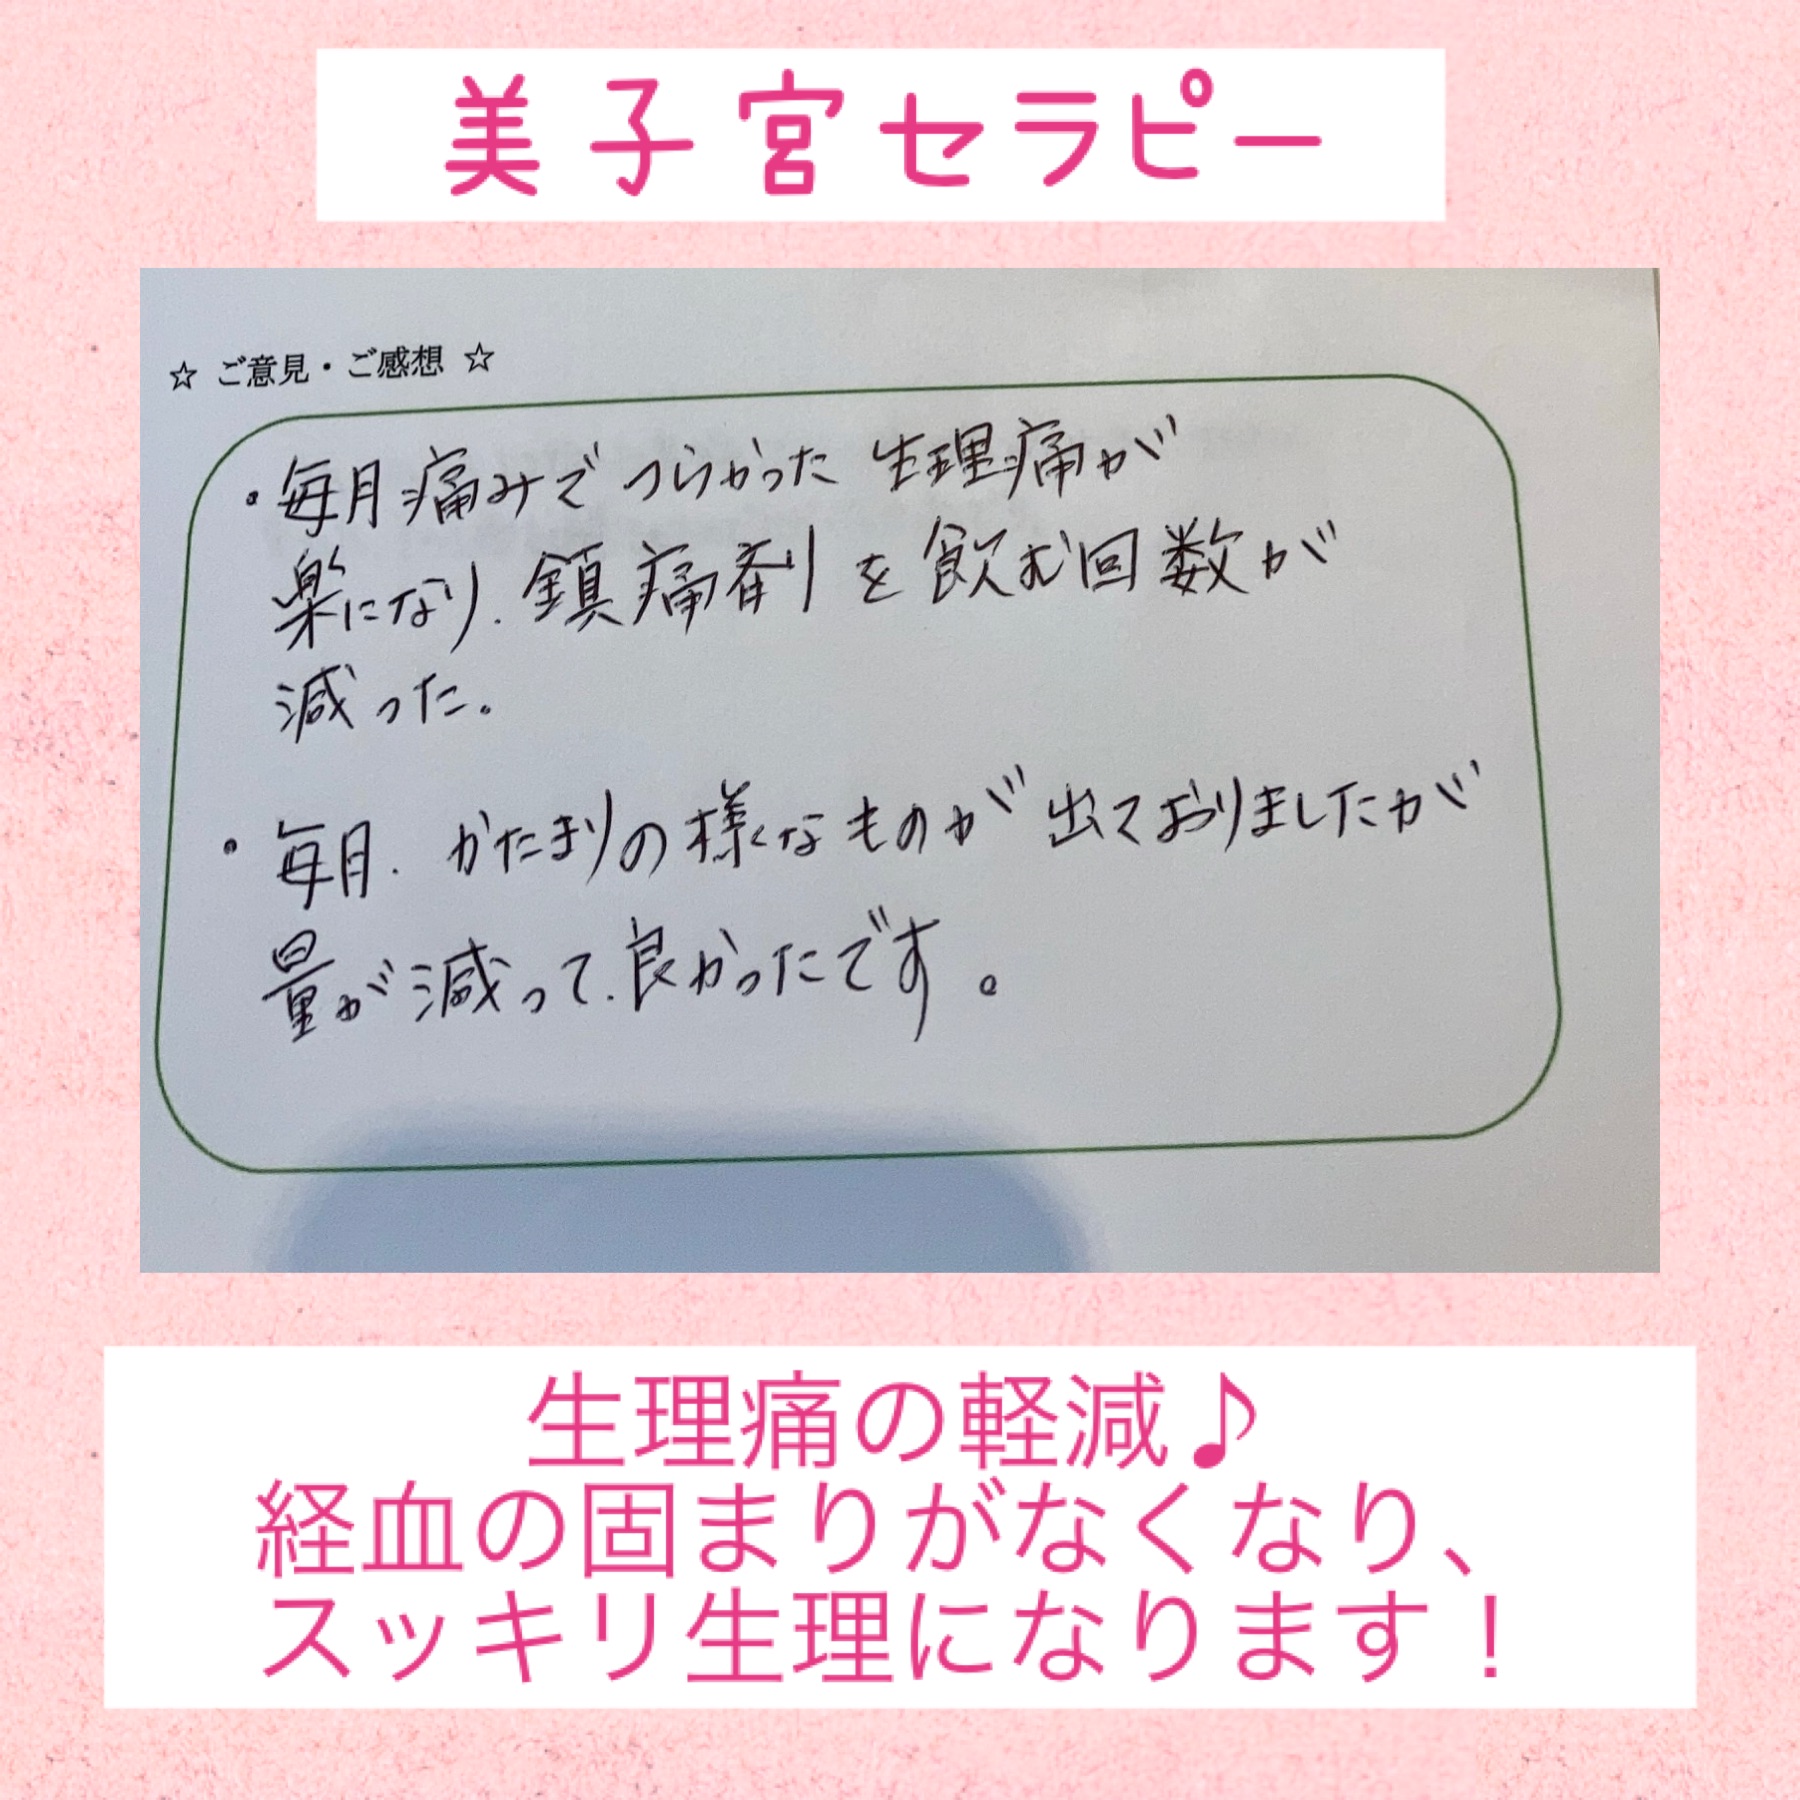 美子宮セラピー
☆ ご意見・ご感想 ☆
・毎月痛みでつらかった生理痛が
楽になり、鎮痛剤を飲む回数が
減った。
・毎月、かたまりの様なものが出ておりましたが
量が減って、良かったです。
生理痛の軽減♪
経血の固まりがなくなり、
スッキリ生理になります！